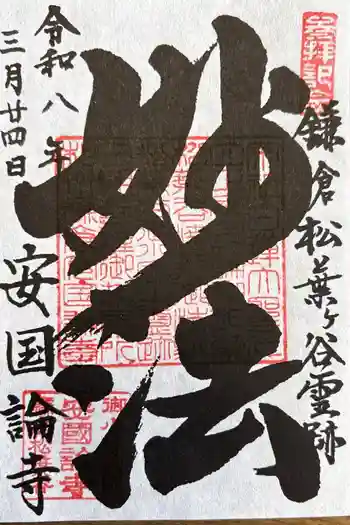 参拝記念
鎌倉松葉ヶ谷霊跡
妙法
令和八年
三月廿四日
安国論寺